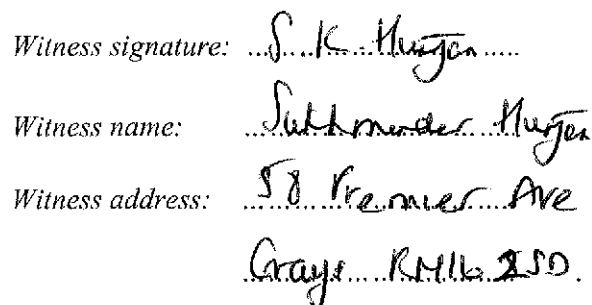 Witness signature: S. K Hunjan
Witness name: Sukhmender Hunjan
Witness address: 58 Premier Ave
Grays RM16 2SD.